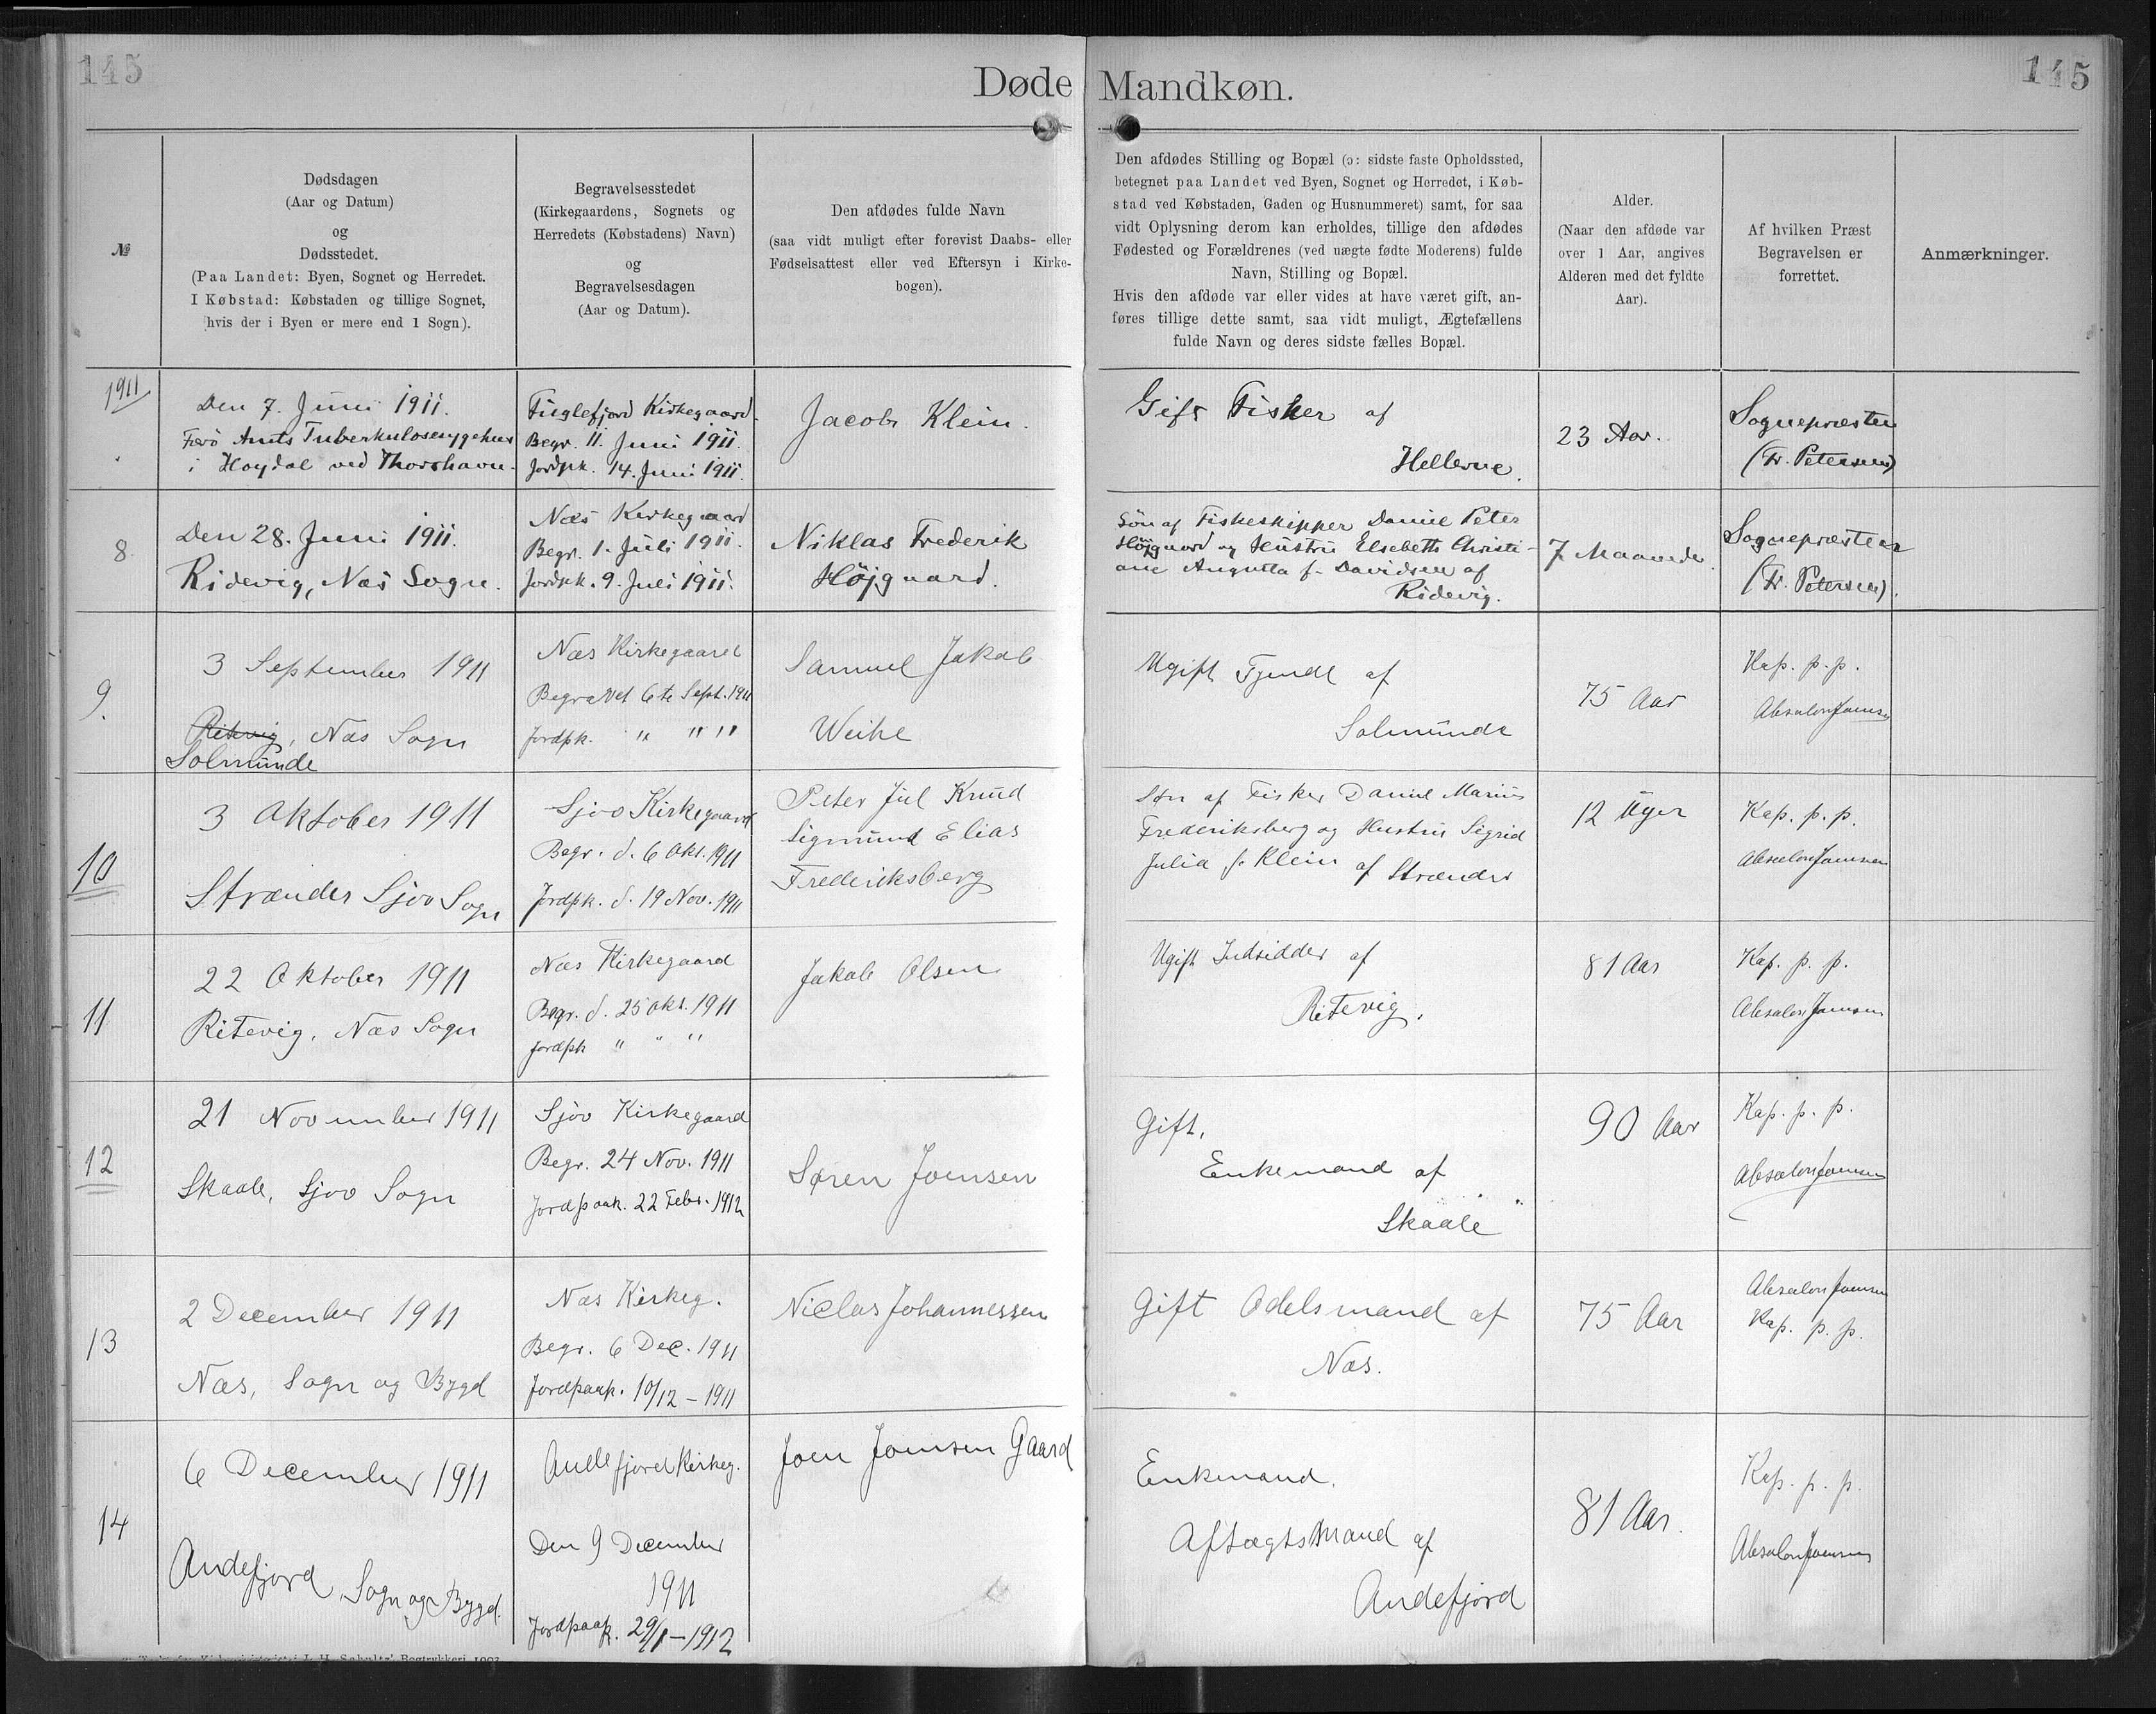 145
Døde Mandkøn.
145
№
Dødsdagen
(Aar og Datum)
og
Dødsstedet.
(Paa Landet: Byen, Sognet og Herredet.
I Købstad: Købstaden og tillige Sognet,
hvis der i Byen er mere end 1 Sogn).
Begravelsesstedet
(Kirkegaardens, Sognets og
Herredets (Købstadens) Navn)
og
Begravelsesdagen
(Aar og Datum).
Den afdødes fulde Navn
(saa vidt muligt efter forevist Daabs- eller
Fødselsattest eller ved Eftersyn i Kirke-
bogen).
Den afdødes Stilling og Bopæl (ɔ: sidste faste Opholdssted,
betegnet paa Landet ved Byen, Sognet og Herredet, i Køb-
stad ved Købstaden, Gaden og Husnummeret) samt, for saa
vidt Oplysning derom kan erholdes, tillige den afdødes
Fødested og Forældrenes (ved uægte fødte Moderens) fulde
Navn, Stilling og Bopæl.
Hvis den afdøde var eller vides at have været gift, an-
føres tillige dette samt, saa vidt muligt, Ægtefællens
fulde Navn og deres sidste fælles Bopæl.
Alder.
(Naar den afdøde var
over 1 Aar, angives
Alderen med det fyldte
Aar).
Af hvilken Præst
Begravelsen er
forrettet.
Anmærkninger.
1911
Den 7. Juni 1911.
Færö Amts Tuberkulosesygehus
i Hoydal ved Thorshavn.
Fuglefjord Kirkegaard.
Begr. 11. Juni 1911.
Jordpk. 14. Juni 1911.
Jacob Klein.
Gift Fisker af
Hellerne.
23 Aar.
Sognepræsten
(Fr. Petersen)
8
Den 28. Juni 1911.
Ridevig, Næs Sogn.
Næs Kirkegaard
Begr. 1. Juli 1911.
Jordpk. 9. Juli 1911.
Niklas Frederik
Højgaard.
Søn af Fiskeskipper Daniel Peter
Højgaard og Hustru Elsebeth Christi-
ane Augusta f. Davidsen af
Ridevig.
7 Maaneder.
Sognepræsten
(Fr. Petersen).
9.
3 September 1911
Ritevig, Næs Sogn
Solmunde
Næs Kirkegaard
Begravet 6te Sept. 1911
Jordpk. " " "
Samuel Jakob
Weihe
Ugift Tyende af
Solmunde
75 Aar
Kap. p. p.
Absalon Joensen
10
3 Oktober 1911
Strænder Sjov Sogn
Sjov Kirkegaard
Begr. d. 6 Okt. 1911
Jordpk. d. 19 Nov. 1911
Peter Jul Knud
Sigmund Elias
Frederiksberg
Søn af Fisker Daniel Marius
Frederiksberg og Hustru Sigrid
Julia f. Klein af Strænder
12 Uger
Kap. p. p.
Absalon Joensen
11
22 Oktober 1911
Ritevig, Næs Sogn
Næs Kirkegaard
Begr. d. 25 Okt. 1911
Jordpk " " "
Jakob Olsen
Ugift Indsidder af
Ritevig.
81 Aar
Kap. p. p.
Absalon Joensen
12
21 November 1911
Skaale, Sjov Sogn
Sjov Kirkegaard
Begr. 24 Nov. 1911
Jordpaak. 22 Febr. 1912
Søren Joensen
Gift.
Enkemand af
Skaale
90 Aar
Kap. p. p.
Absalon Joensen
13
2 December 1911
Næs, Sogn og Bygd
Næs Kirkeg.
Begr. 6 Dec. 1911
Jordpaak. 10/12 - 1911
Niclas Johannessen
Gift Odelsmand af
Næs.
75 Aar
Absalon Joensen
Kap. p. p.
14
6 December 1911
Andefjord, Sogn og Bygd.
Andefjord Kirkeg.
Den 9 December
1911
Jordpaak. 29/1 - 1912
Joen Joensen Gaard
Enkemand.
Aftægtsmand af
Andefjord
81 Aar.
Kap. p. p.
Absalon Joensen